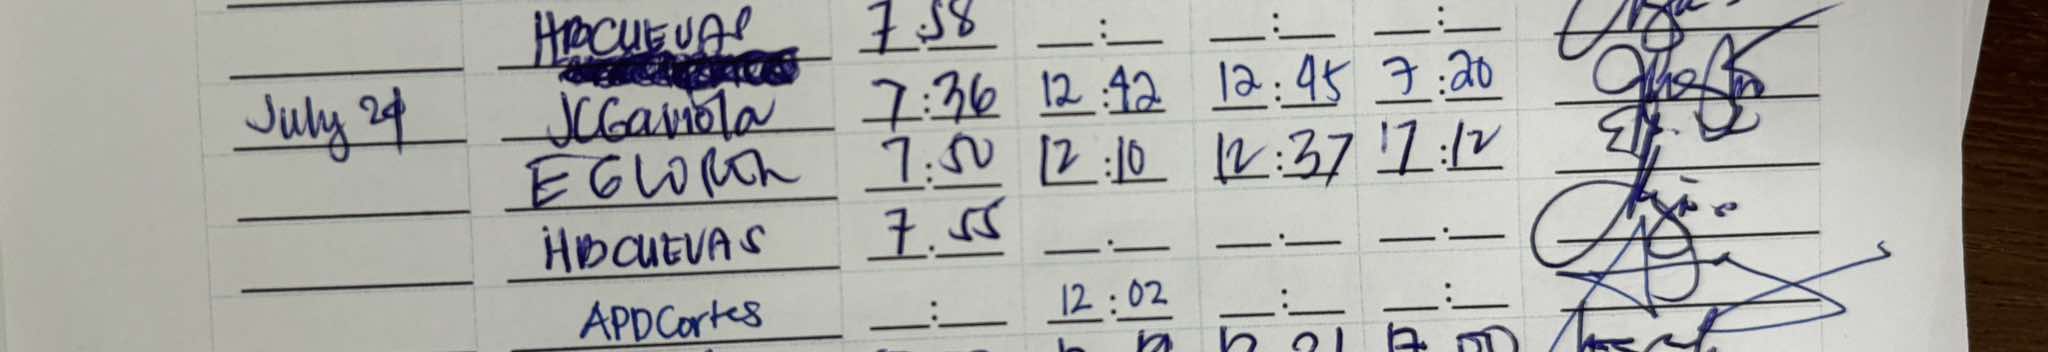 HDCUEVAS 7:58 __:__ __:__ __:__
July 24 JCGaviola 7:36 12:42 12:45 7:20
EGLORIA 7:50 12:10 12:37 17:12
HDCUEVAS 7:55 __:__ __:__ __:__
APDCortes __:__ 12:02 __:__ __:__